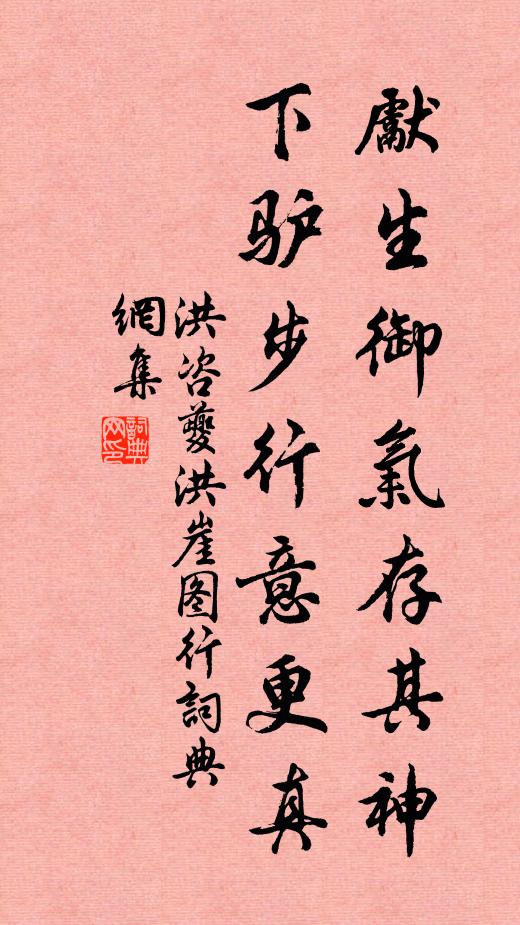 獻生御氣存其神
下驴步行意更真
洪咨夔洪崖图行詞典
網集
詞典
网印